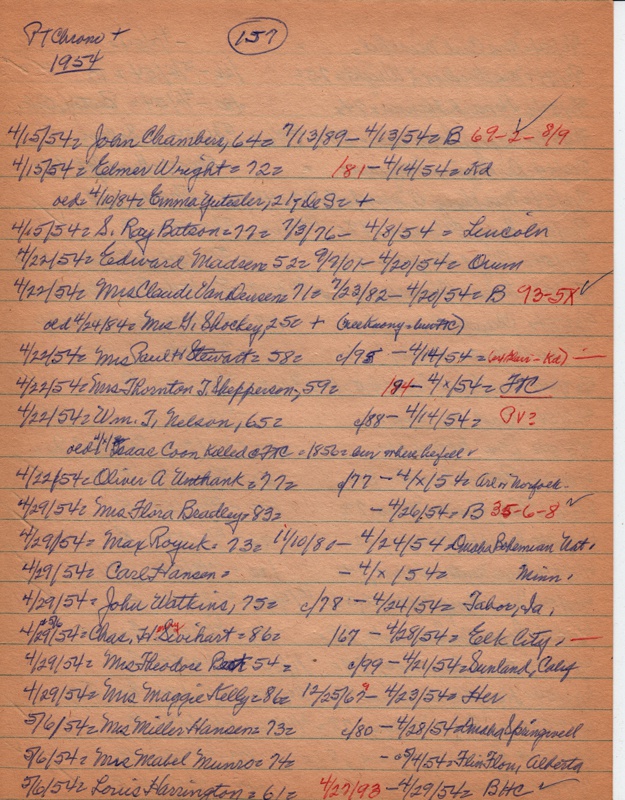 PT Chrono + 157
1954
4/15/54= John Chambers, 64= 7/13/89 - 4/13/54= B 69-2-8/9
4/15/54= Elmer Wright= 72= 181 - 4/14/54= Kd
oed= 4/10/84= Emma 21 +
4/15/54= S. Ray Batson= 77= 7/3/76 - 4/8/54= Lincoln
4/22/54= Edward Madsen= 52= 9/7/01 - 4/20/54= Orum
4/22/54= Mrs Claude Van Deusen= 71= 7/23/82 - 4/20/54= B 93-5X
oed 4/24/84= Mrs G. Shockey, 25= +
4/22/54= Mrs Paul H Stewart= 58= c/95 - 4/14/54=
4/22/54= Mrs Thornton T. Shepperson, 59= 184 - 4/x/54= FTC
4/22/54= Wm. T. Nelson, 65= c/88 - 4/14/54= PV?
oed Isaac Coon killed @ FTC = 1856=
4/22/54= Oliver A Unthank= 77= c/77 - 4/x/54=
4/29/54= Mrs Flora Bradley= 83= - 4/26/54= B 35-6-8
4/29/54= Max Royuk= 73= 11/10/80 - 4/24/54= Omaha Bohemian Nat.
4/29/54= Carl Hansen= - 4/x/54= Minn.
4/29/54= John Watkins, 75= c/78 - 4/24/54= Tabor, Ia.
4/29/54= Chas. H. = 86= 167 - 4/28/54= Elk City.
4/29/54= Mrs Theodore 54= c/99 - 4/21/54= Sunland, Calif
4/29/54= Mrs Maggie Kelly= 86= 12/25/67 - 4/23/54= Her
5/6/54= Mrs Miller Hansen= 73= c/80 - 4/28/54= Omaha Springwell
5/6/54= Mrs Mabel Munro= 74= - 5/4/54= Flin Flon, Alberta
5/6/54= Louis Harrington= 61= 4/27/93 - 4/29/54= BHC